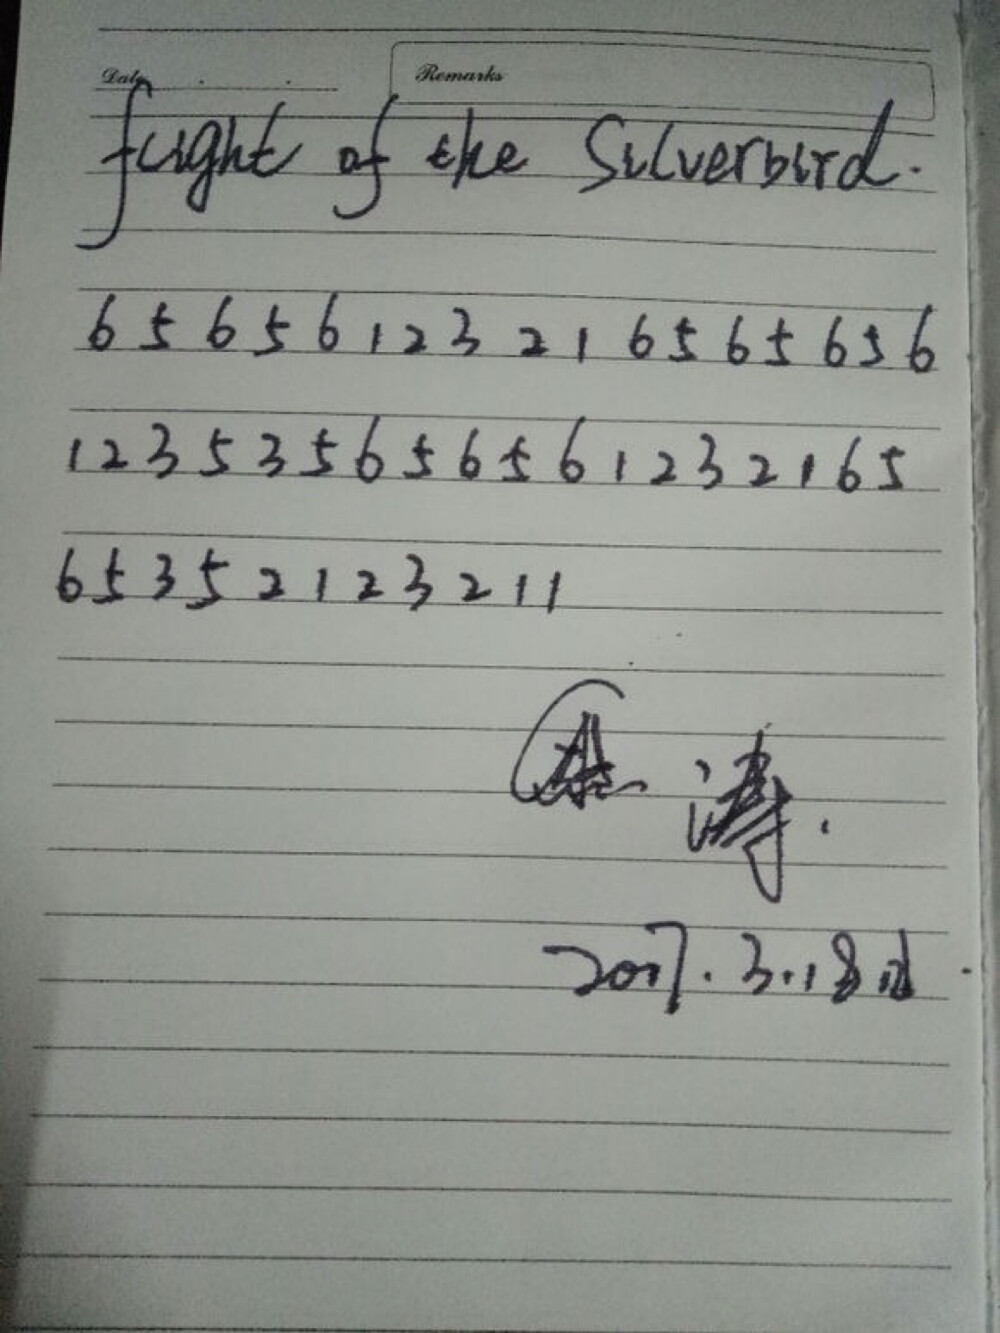 Date Remarks
flight of the Silverbird.
6 5 6 5 6 1 2 3 2 1 6 5 6 5 6 5 6
1 2 3 5 3 5 6 5 6 5 6 1 2 3 2 1 6 5
6 5 3 5 2 1 2 3 2 1 1
涛.
2017.3.18